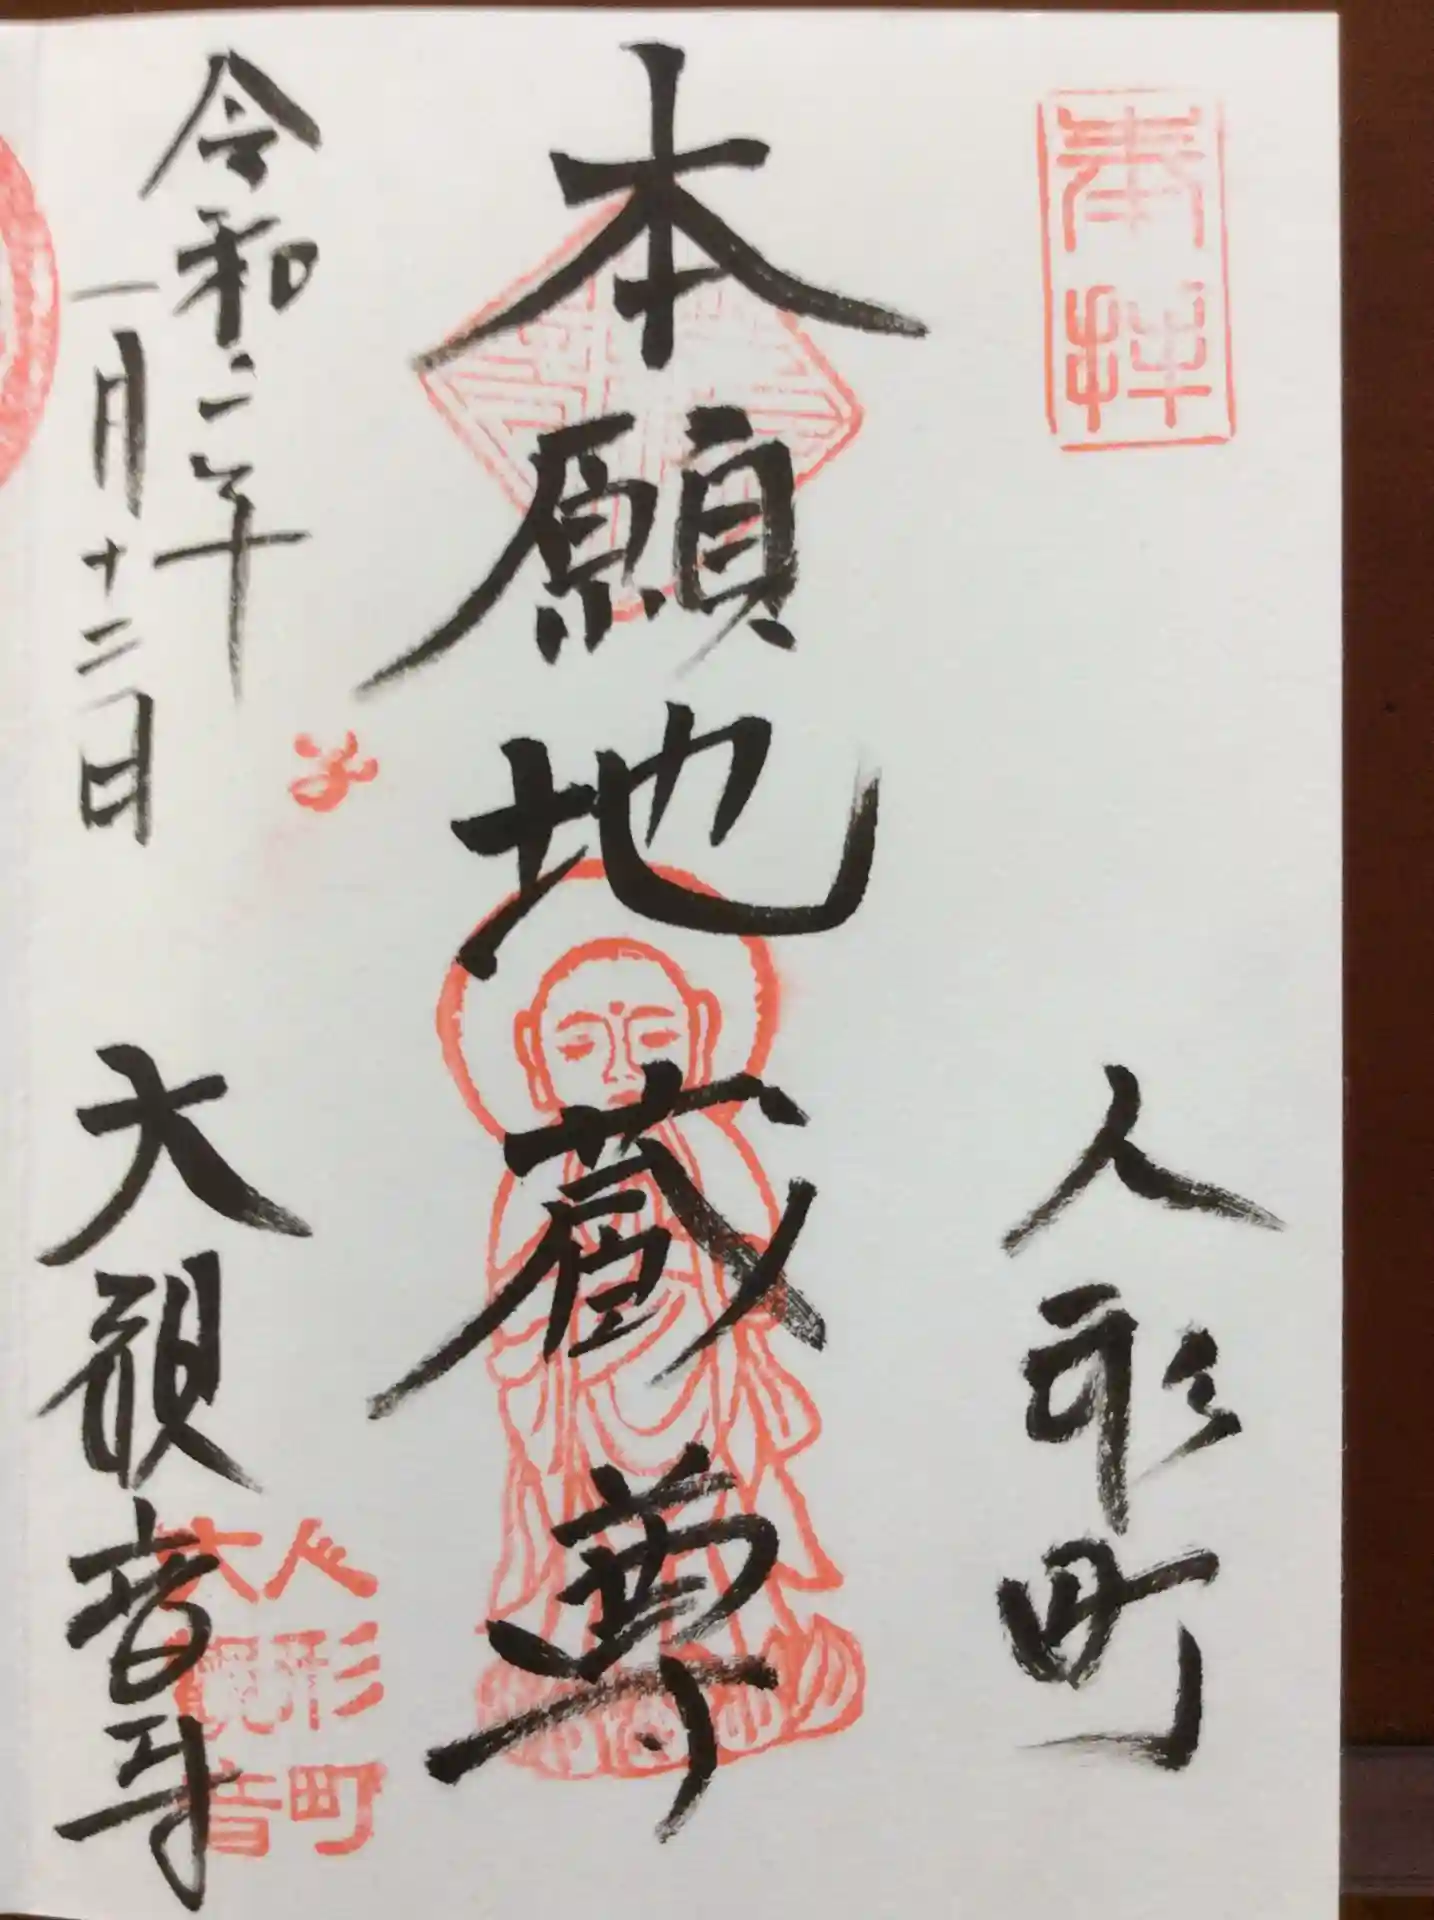 奉拝
人形町
本願地蔵尊
令和二年
一月十二日
子
大観音寺
人形町
大観音